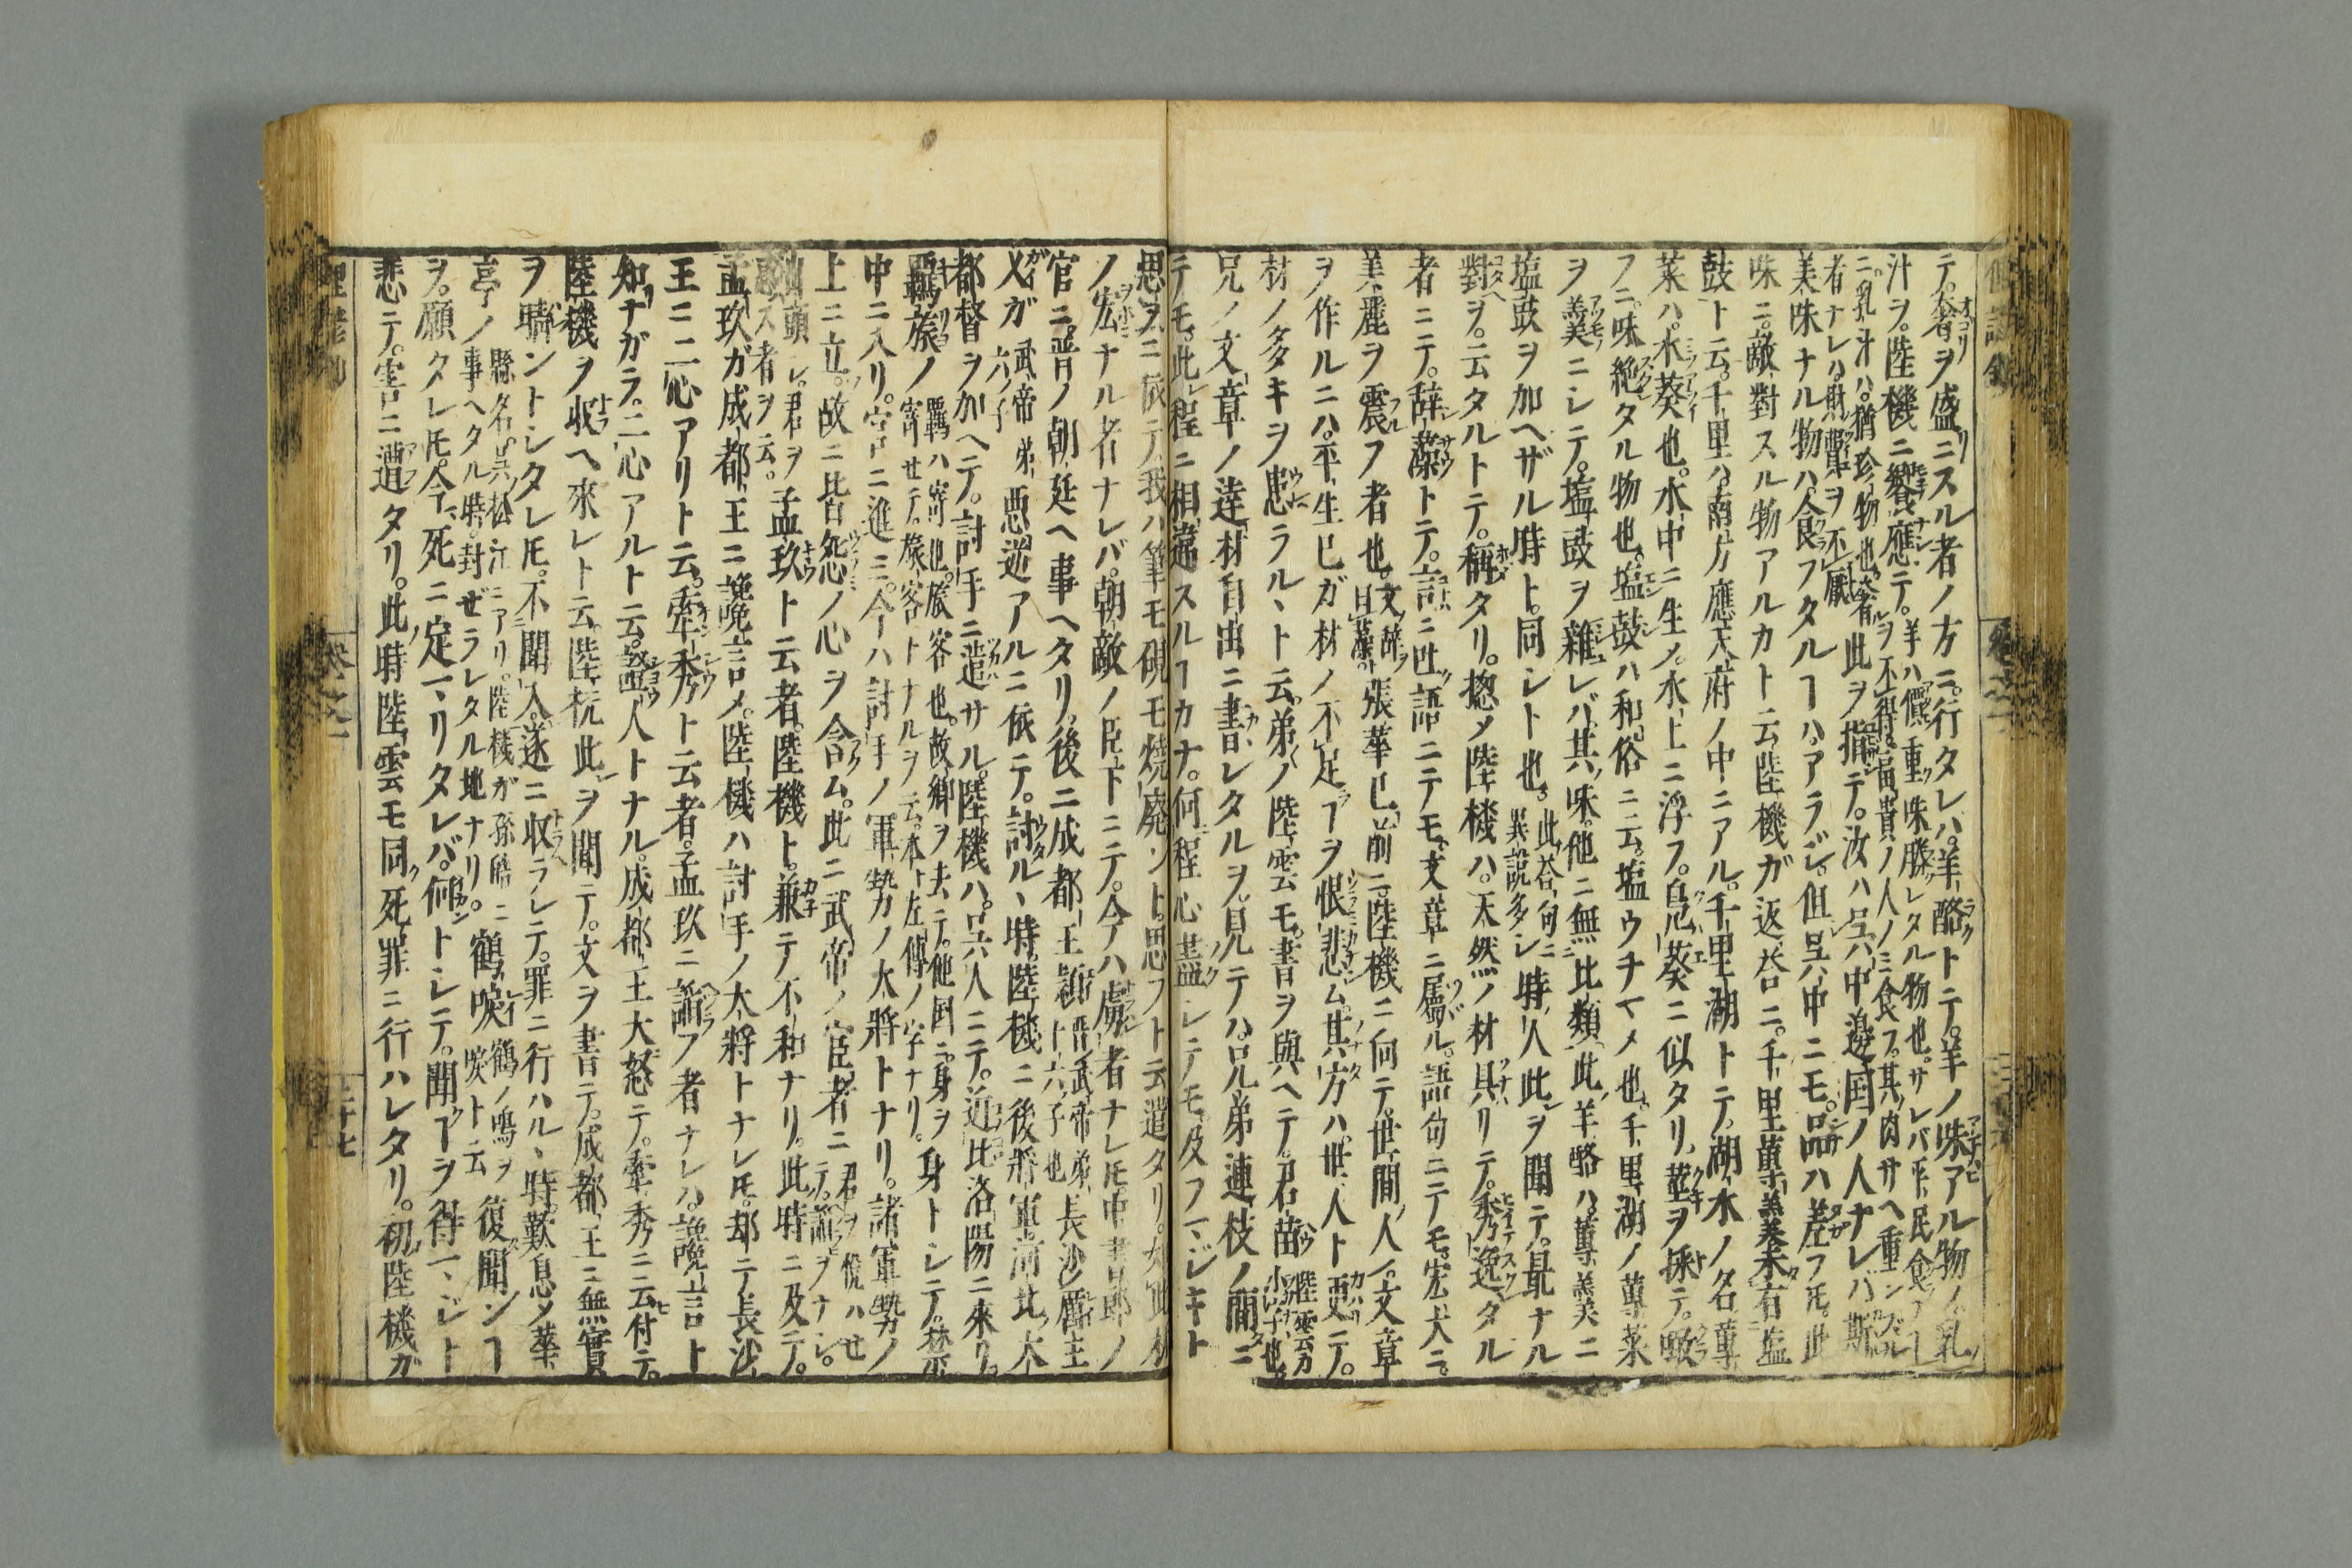 テ。奢ヲ盛ニスル者ノ方ニ。行タレハ。羊酪トテ。羊ノ味アル物ノ。乳ノ
汁ヲ。陸機ニ饗應テ。羊ハ價重ク味勝レタル物也。サレバ平民食フ
ニ。乳汁ハ。猶珍物也。奢ヲ不得。富貴ノ人ノミ食フ。其肉サヘ重ンズル
者ナレハ。財寶ヲ不厭。此ヲ指テ。汝ハ呉中邊国ノ人ナレバ。斯
美味ナル物ハ。食フタルヿハ。アラジ。但呉中ニモ。品ハ差フ𪜈。此
味ニ。敵對スル物アルカト云。陸機ガ返答ニ。千里蓴羹。未有塩
豉ト云。千里ハ。南方應天府ノ中ニアル。千里湖トテ。湖水ノ名。蓴
菜ハ。水葵也。水中ニ生メ。水上ニ浮フ。鳬葵ニ似タリ。莖ヲ採テ。噉
フニ。味絶タル物也。塩豉ハ和俗ニ云。塩ウチマメ也。千里湖ノ蓴菜
ヲ羹ニシテ。塩豉ヲ雜レバ。其味。他ニ無比類。此羊酪ハ。蓴羹ニ
塩豉ヲ加ヘザル時ト。同シト也。此答句ニ異説多シ時人此ヲ聞テ。最ナル
對ヲ。云タルトテ。稱タリ。揔メ陸機ハ。天然ノ材具リテ。秀逸タル
者ニテ。辞藻トテ。言ニ吐語ニテモ。文章ニ屬ル。語句ニテモ。宏大ニ。
美麗ヲ震フ者也。文辞ヲ曰藻ト張華已前ニ。陸機ニ向テ。世間ノ人ノ。文章
ヲ作ルニハ。平生已ガ材ノ不足ヿヲ恨悲ム。其方ハ。世人ト更テ。
材ノ多キヲ患ラルヽト云。弟ノ陸雲モ。書ヲ與ヘテ。君苗陸雲カ小字也
兄ノ文章ノ達材自出ニ書レタルヲ。見テハ。兄弟連枝ノ間ニ
テモ。此程ニ相違スルヿカナ。何程心盡シテモ。及フマジキト
思ヲニ依テ。我ハ筆モ硯モ焼廃ント。思フト云遣タリ。如此材
ノ宏ナル者ナレバ。朝敵ノ臣下ニテ。今ハ虜者ナレ𪜈。中書郎ノ
官ニ。晋ノ朝廷ヘ事ヘタリ。後ニ成都王穎晋武帝弟六ノ子也長沙厲王
乂ガ武帝弟六ノ子悪逆アルニ依テ。討ルヽ時。陸機ニ後將軍。河北大
都督ヲ加ヘテ。討手ニ遣サル。陸機ハ。呉人ニテ。近比洛陽ニ來リ。
羈旅ノ羈ハ寄也。旅客也。故郷ヲ去テ。他国ニ身ヲ寄セテ。旅客トナルヲ云。本ト左傳ノ字ナリ。身トシテ。禁
中ニ入リ。官ニ進ミ。今ハ討手ノ軍勢ノ大將トナリ。諸軍勢ノ
上ニ立。故ニ皆怨ノ心ヲ含ム。此ニ武帝ノ宦者ニ君ヲ悦ハセテ。諂ヲナシ。
頭シ。君ヲス者ヲ云。孟玖ト云者。陸機ト。兼テ不和ナリ。此時ニ及テ。
孟玖ガ成都王ニ讒言メ。陸機ハ討手ノ大將トナレ𪜈。却テ長沙
王ニ二心アリト云。牽秀ト云者。孟玖ニ諂フ者ナレハ。讒言ト
知ナガラ。二心アルト云。證人トナル。成都王大怒テ。牽秀ニ云付テ。
陸機ヲ收ヘ來レト云。陸抗此ヲ聞テ。文ヲ書テ。成都王ニ無實
ヲ。ントシタレ𪜈。不聞入。遂ニ収ラレテ。罪ニ行ハルヽ時。歎息メ華
亭ノ縣名。呉ノ松江ニアリ。陸機ガ孫晧ニ事ヘタル時。封ゼラレタル地ナリ。鶴唳鶴ノ鳴ヲ唳ト云復聞ンヿ
ヲ。願タレ𪜈。今死ニ定マリタレバ。何トシテ。聞ヿヲ得マジト
悲テ。害ニ遭タリ。此時陸雲モ同死罪ニ行ハレタリ。初陸機ガ